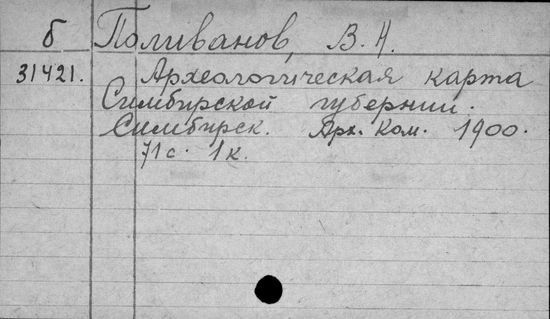 б Поливанов, В.Н.
31421. Археологическая карта
Симбирской губернии.
Симбирск. Арх. Ком. 1900.
71 с. 1 к.